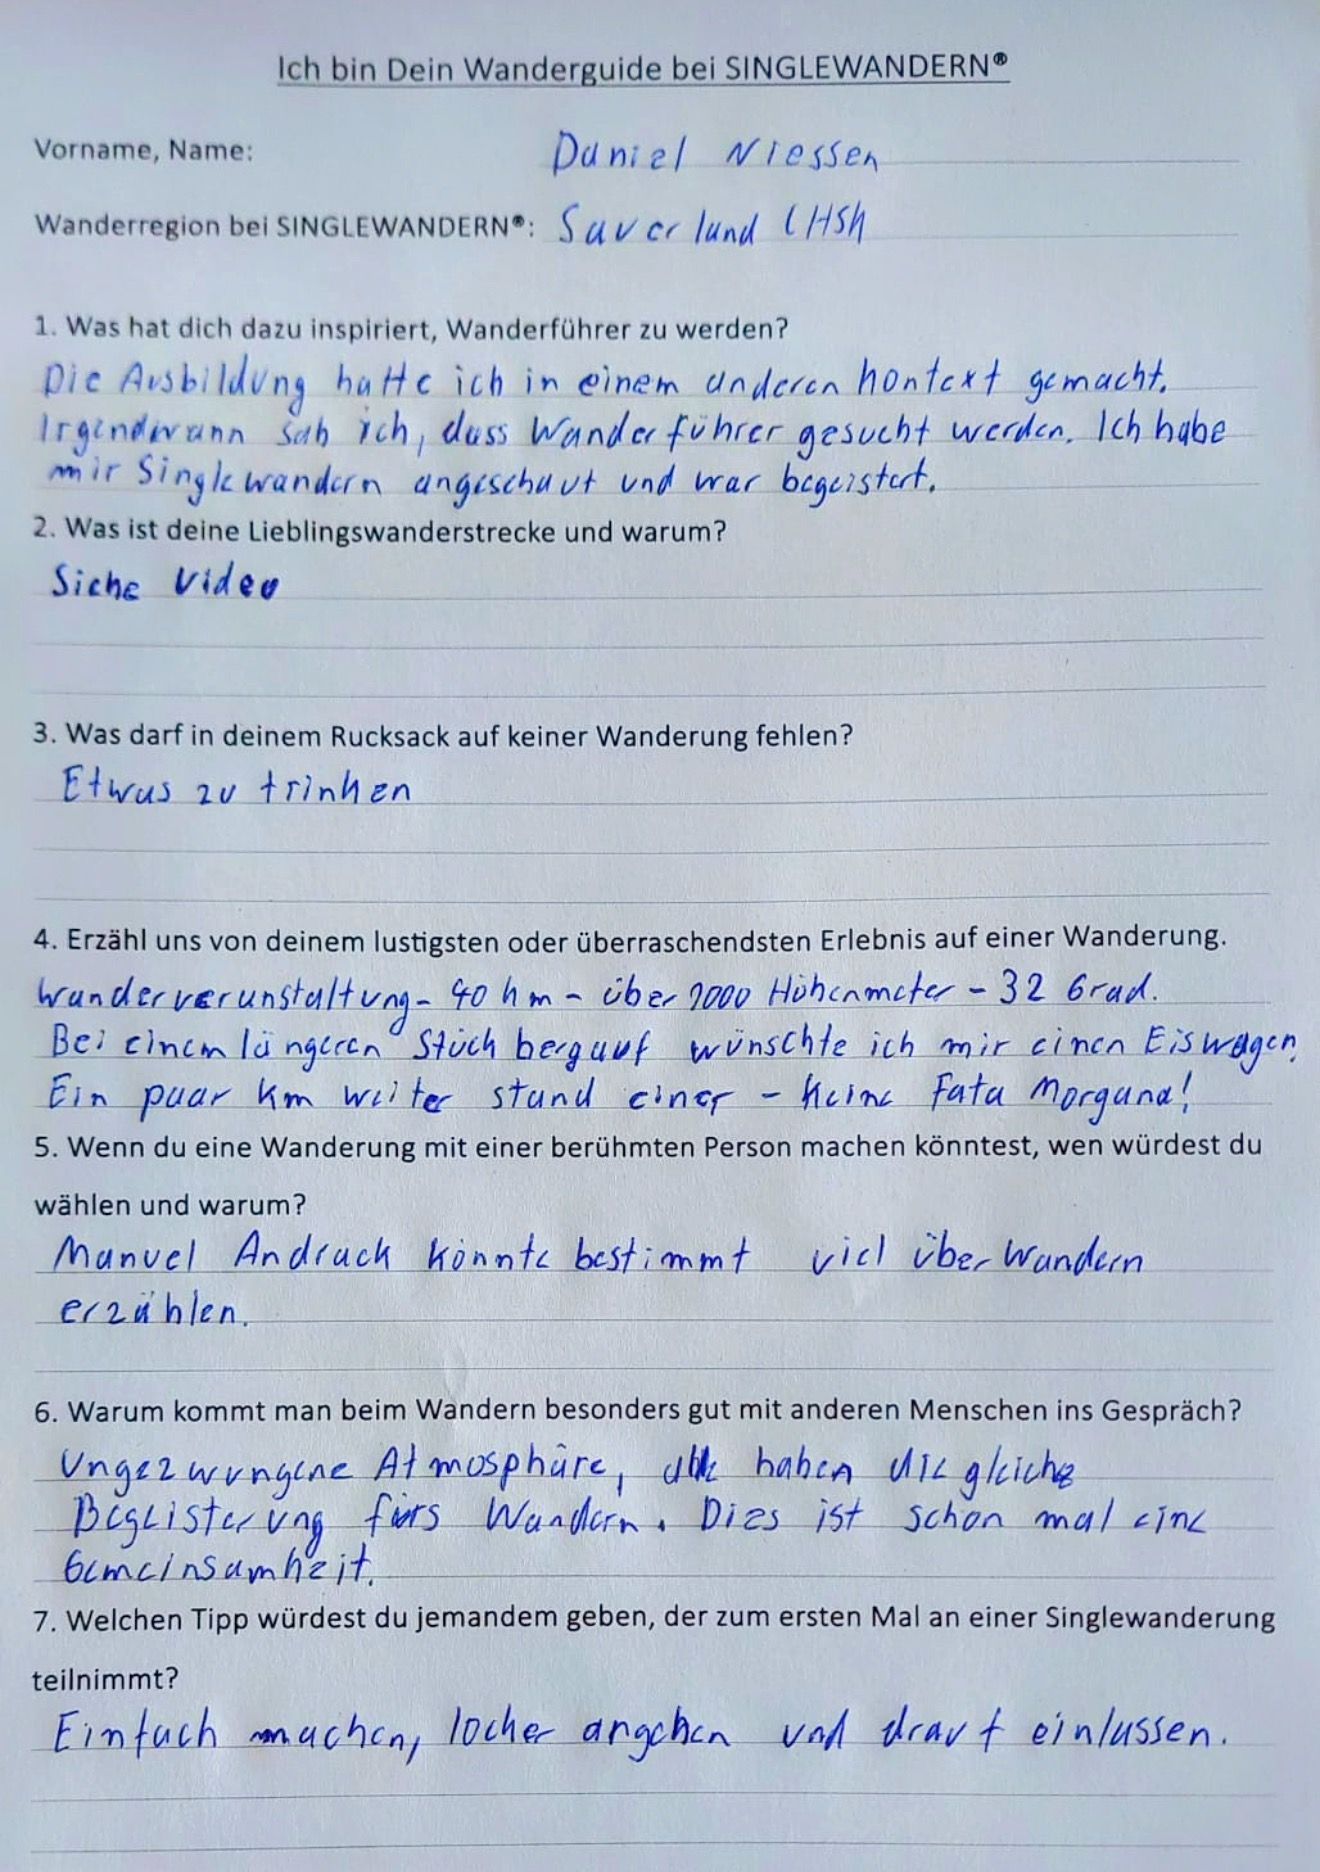 Ich bin Dein Wanderguide bei SINGLEWANDERN®
Vorname, Name: Daniel Niessen
Wanderregion bei SINGLEWANDERN®: Sauerland
1. Was hat dich dazu inspiriert, Wanderführer zu werden?
Die Ausbildung hatte ich in einem anderen Kontext gemacht.
Irgendwann sah ich, dass Wanderführer gesucht werden. Ich habe
mir Singlewandern angeschaut und war begeistert.
2. Was ist deine Lieblingswanderstrecke und warum?
Siehe Video
3. Was darf in deinem Rucksack auf keiner Wanderung fehlen?
Etwas zu trinken
4. Erzähl uns von deinem lustigsten oder überraschendsten Erlebnis auf einer Wanderung.
Wanderveranstaltung - 40 km - über Höhenmeter - 32 Grad.
Bei einem längeren Stück bergauf wünschte ich mir einen Eiswagen.
Ein paar km weiter stand einer - keine Fata Morgana!
5. Wenn du eine Wanderung mit einer berühmten Person machen könntest, wen würdest du
wählen und warum?
Manuel Andrack könnte bestimmt viel über Wandern
erzählen.
6. Warum kommt man beim Wandern besonders gut mit anderen Menschen ins Gespräch?
Ungezwungene Atmosphäre, alle haben die gleiche
Begeisterung fürs Wandern. Dies ist schon mal eine
Gemeinsamkeit.
7. Welchen Tipp würdest du jemandem geben, der zum ersten Mal an einer Singlewanderung
teilnimmt?
Einfach machen, locker angehen und drauf einlassen.